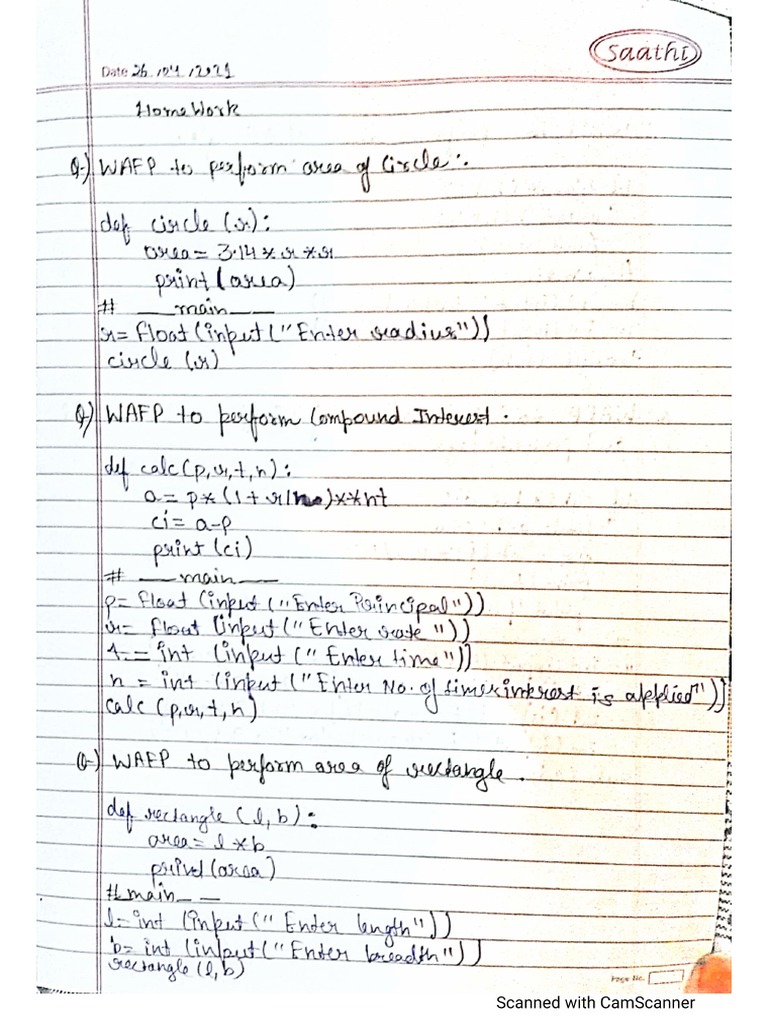 Saathi
Date 26/04/2021
Home Work
Q-) WAFP to perform area of Circle :.
def circle (r):
area = 3.14 * r * r
print (area)
# __main__
r= float (input ("Enter radius"))
circle (r)
Q-) WAFP to perform Compound Interest.
def calc (p, r, t, n):
a = p* (1 + r/n)**nt
ci = a-p
print (ci)
# __main__
p= float (input ("Enter Principal"))
r= float (input ("Enter rate"))
t = int (input ("Enter time"))
n = int (input ("Enter No. of times interest is applied"))
calc (p, r, t, n)
Q-) WAFP to perform area of rectangle.
def rectangle (l, b):
area = l * b
print (area)
# main__
l= int (input ("Enter length"))
b= int (input ("Enter breadth"))
rectangle (l, b)
Page No.
Scanned with CamScanner